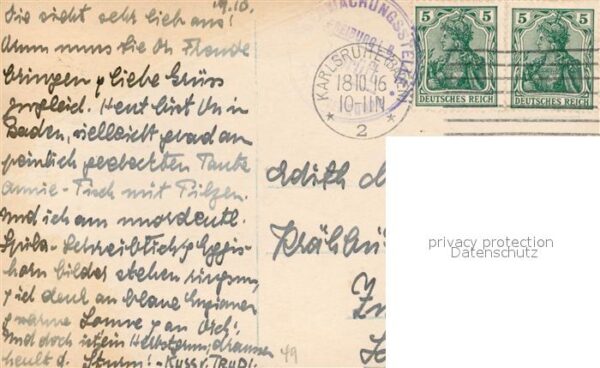 19.10.
Sie sieht sehr lieb aus!
Dann muss sie Dir Freude
bringen & liebe Grüsse
zugleich. Heut bist Du in
Baden, vielleicht grad am
peinlich gedeckten Tante
Annie-Tisch mit Pilzen.
Und ich am unordentl.
Schreibtisch
horn bilder stehen ringsum,
& ich denk an blaue Enziane
& warme Sonne & an Dich!
Und doch ist ein Herbststurm; draussen
heult d. Sturm! - Kuss v. Trudi.
49
ÜBERWACHUNGSSTELLE
FREIBURG i. B.
KARLSRUHE (B.)
18.10.16.
10-11 N
* 2 *
5 5
DEUTSCHES REICH
5 5
DEUTSCHES REICH
Edith
privacy protection
Datenschutz